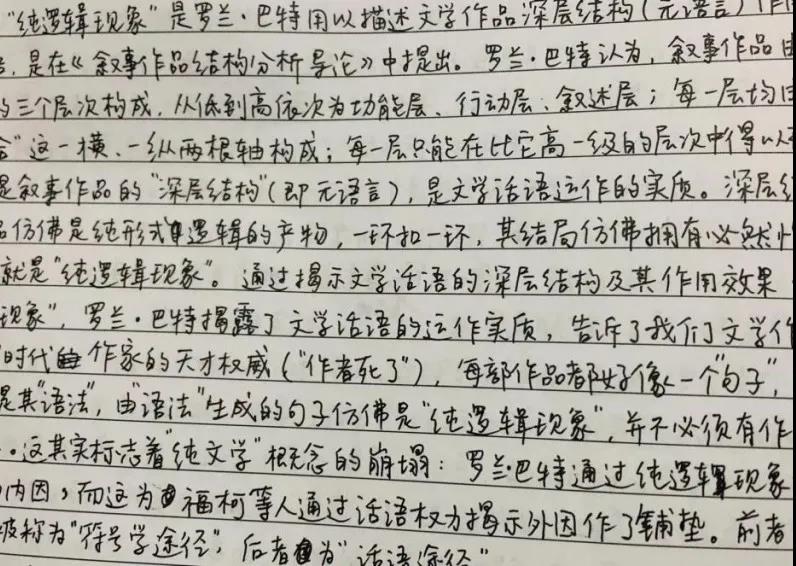 "纯逻辑现象"是罗兰·巴特用以描述文学作品深层结构(元语言)作用
,是在《叙事作品结构分析导论》中提出。罗兰·巴特认为,叙事作品由
的三个层次构成,从低到高依次为功能层、行动层、叙述层;每一层均由
"这一横、一纵两根轴构成;每一层只能在比它高一级的层次中得以
是叙事作品的"深层结构"(即元语言),是文学话语运作的实质。深层
品仿佛是纯形式逻辑的产物,一环扣一环,其结局仿佛拥有必然
就是"纯逻辑现象"。通过揭示文学话语的深层结构及其作用效果
现象",罗兰·巴特揭露了文学话语的运作实质,告诉了我们文学作
时代作家的天才权威("作者死了"),每部作品都好像一个"句子",
是其"语法",由"语法"生成的句子仿佛是"纯逻辑现象",并不必须有作
。这其实标志着"纯文学"概念的崩塌:罗兰·巴特通过纯逻辑现象
内因,而这为福柯等人通过话语权力揭示外因作了铺垫。前者
被称为"符号学途径",后者为"话语途径"